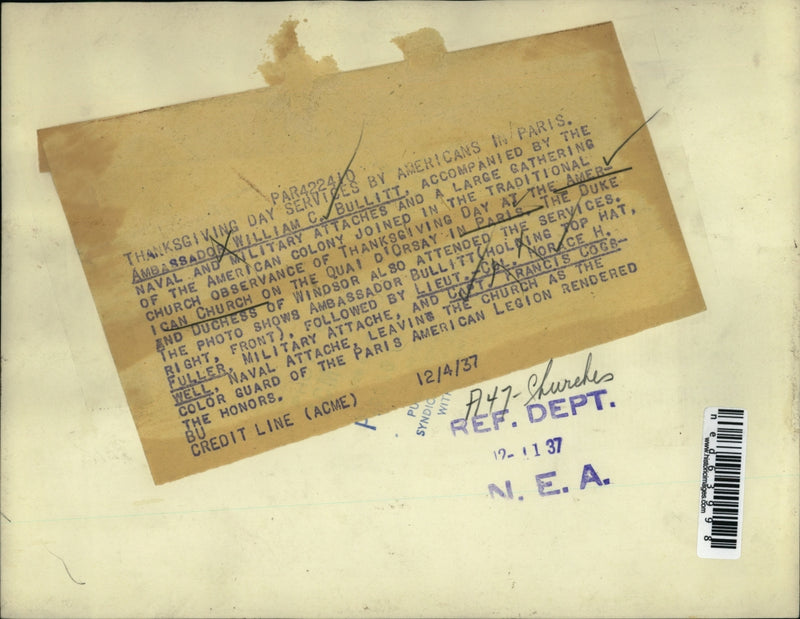 PAR422410
THANKSGIVING DAY SERVICES BY AMERICANS IN PARIS.
AMBASSADOR WILLIAM C. BULLITT, ACCOMPANIED BY THE
NAVAL AND MILITARY ATTACHES AND A LARGE GATHERING
OF THE AMERICAN COLONY JOINED IN THE TRADITIONAL
CHURCH OBSERVANCE OF THANKSGIVING DAY AT THE AMER-
ICAN CHURCH ON THE QUAI D'ORSAY IN PARIS. THE DUKE
AND DUCHESS OF WINDSOR ALSO ATTENDED THE SERVICES.
THE PHOTO SHOWS AMBASSADOR BULLITT (HOLDING TOP HAT,
RIGHT, FRONT), FOLLOWED BY LIEUT. COL. HORACE H.
FULLER, MILITARY ATTACHE, AND CAPT. FRANCIS COGS-
WELL, NAVAL ATTACHE, LEAVING THE CHURCH AS THE
COLOR GUARD OF THE PARIS AMERICAN LEGION RENDERED
THE HONORS.
BU
CREDIT LINE (ACME) 12/4/37
PU
SYNDIC
WIT
A47-Churches
REF. DEPT.
12-11 37
N. E. A.
www.historicimages.com
ned63898